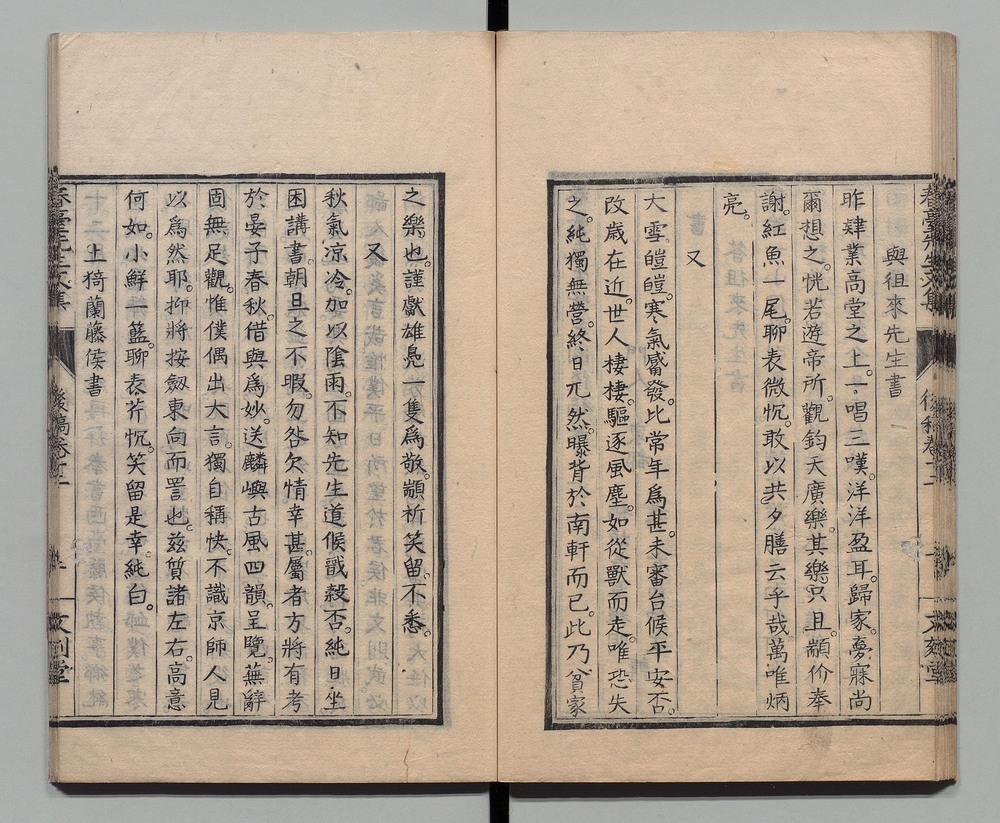 與徂來先生書
昨肆業高堂之上。一唱三嘆。洋洋盈耳。歸家。夢寐尚
爾想之。恍若遊帝所。觀鈞天廣樂。其樂只且。顓价奉
謝。紅魚一尾。聊表微忱。敢以共夕膳云乎哉。萬唯炳
亮。
又
大雪皚皚。寒氣觱發。比常年爲甚。未審台候平安否。
改歲在近。世人棲棲。驅逐風塵。如從獸而走。唯恐失
之。純獨無營。終日兀然。曝背於南軒而已。此乃貧家
之樂也。謹獻雄鳧一隻爲敬。顓祈笑留。不悉。
又
秋氣凉冷。加以陰雨。不知先生道候戩穀否。純日坐
困講書。朝旦之不暇。勿咎欠情幸甚。屬者方將有考
於晏子春秋。借與爲妙。送麟嶼古風四韻。呈覽。蕪辭
固無足觀。惟僕偶出大言。獨自稱快。不識京師人見
以爲然耶。抑將按劔東向而詈也。茲質諸左右。高意
何如。小鮮一籃。聊表芹忱。笑留是幸。純白。
上猗蘭藤侯書
春臺先生文集
後稿卷十二